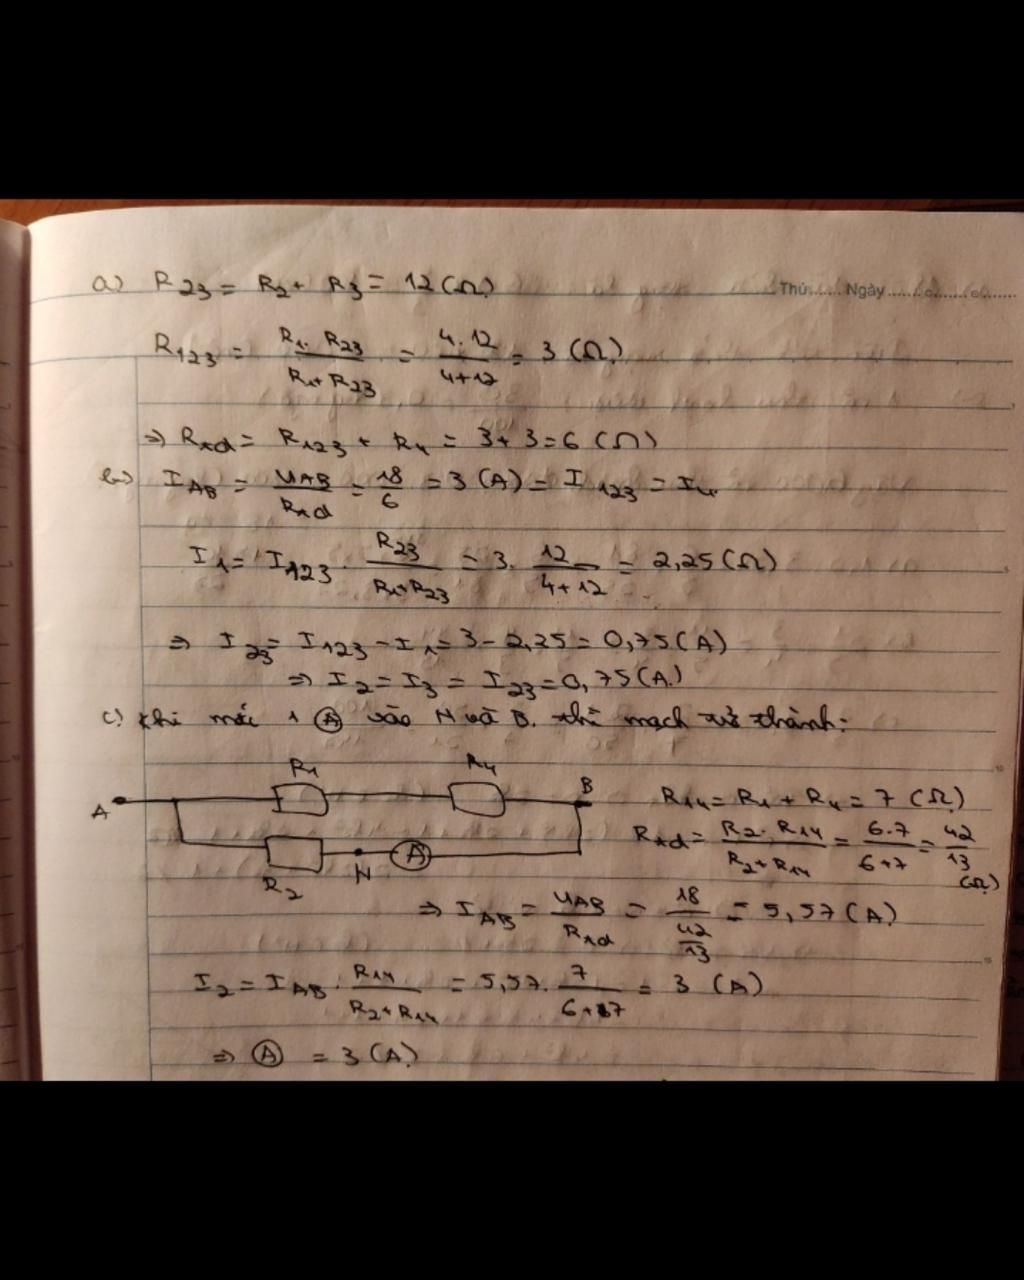 Thứ...... Ngày.....................
a) R23 = R2 + R3 = 12 (Ω)
R123 = R1. R23 / R1 + R23 = 4.12 / 4+12 = 3 (Ω)
=> Rtđ = R123 + R4 = 3 + 3 = 6 (Ω)
b) IAB = UAB / Rtđ = 18 / 6 = 3 (A) = I123 = I4
I1 = I123 . R23 / R1+R23 = 3. 12 / 4+12 = 2,25 (Ω)
=> I23 = I123 - I1 = 3 - 2,25 = 0,75 (A)
=> I2 = I3 = I23 = 0,75 (A)
c) Khi mắc 1 (A) vào N và B. thì mạch trở thành:
R1 R4
A B
R2 N A
R14 = R1 + R4 = 7 (Ω)
Rtđ = R2. R14 / R2+R14 = 6.7 / 6+7 = 42 / 13 (Ω)
=> IAB = UAB / Rtđ = 18 / 42/13 = 5,57 (A)
I2 = IAB . R14 / R2+R14 = 5,57. 7 / 6+7 = 3 (A)
=> (A) = 3 (A)